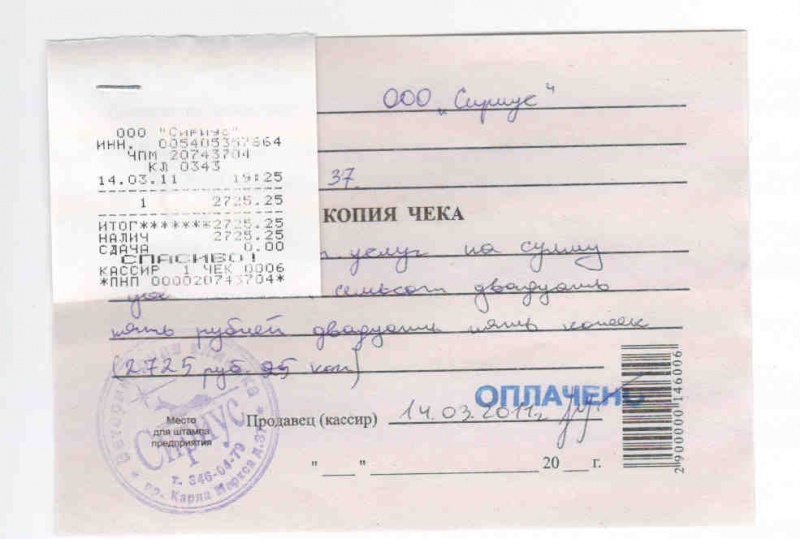 ООО "Сириус"
ИНН. 005405357664
ЧПМ 20743704
КЛ 0343
14.03.11 19:25
1 2725.25
ИТОГ*******2725.25
НАЛИЧ 2725.25
СДАЧА 0.00
СПАСИБО!
КАССИР 1 ЧЕК 0006
*ПНП 000020743704*
ООО "Сириус"
37.
КОПИЯ ЧЕКА
услуг на сумму
семьсот двадцать
пять рублей двадцать пять копеек
(2725 руб. 25 коп)
ОПЛАЧЕНО
Продавец (кассир) 14.03.2011г.
"___" ______ 20___г.
Место
для штампа
предприятия
Сириус
т. 346-04-79
пр. Карла Маркса
2 900000 146006